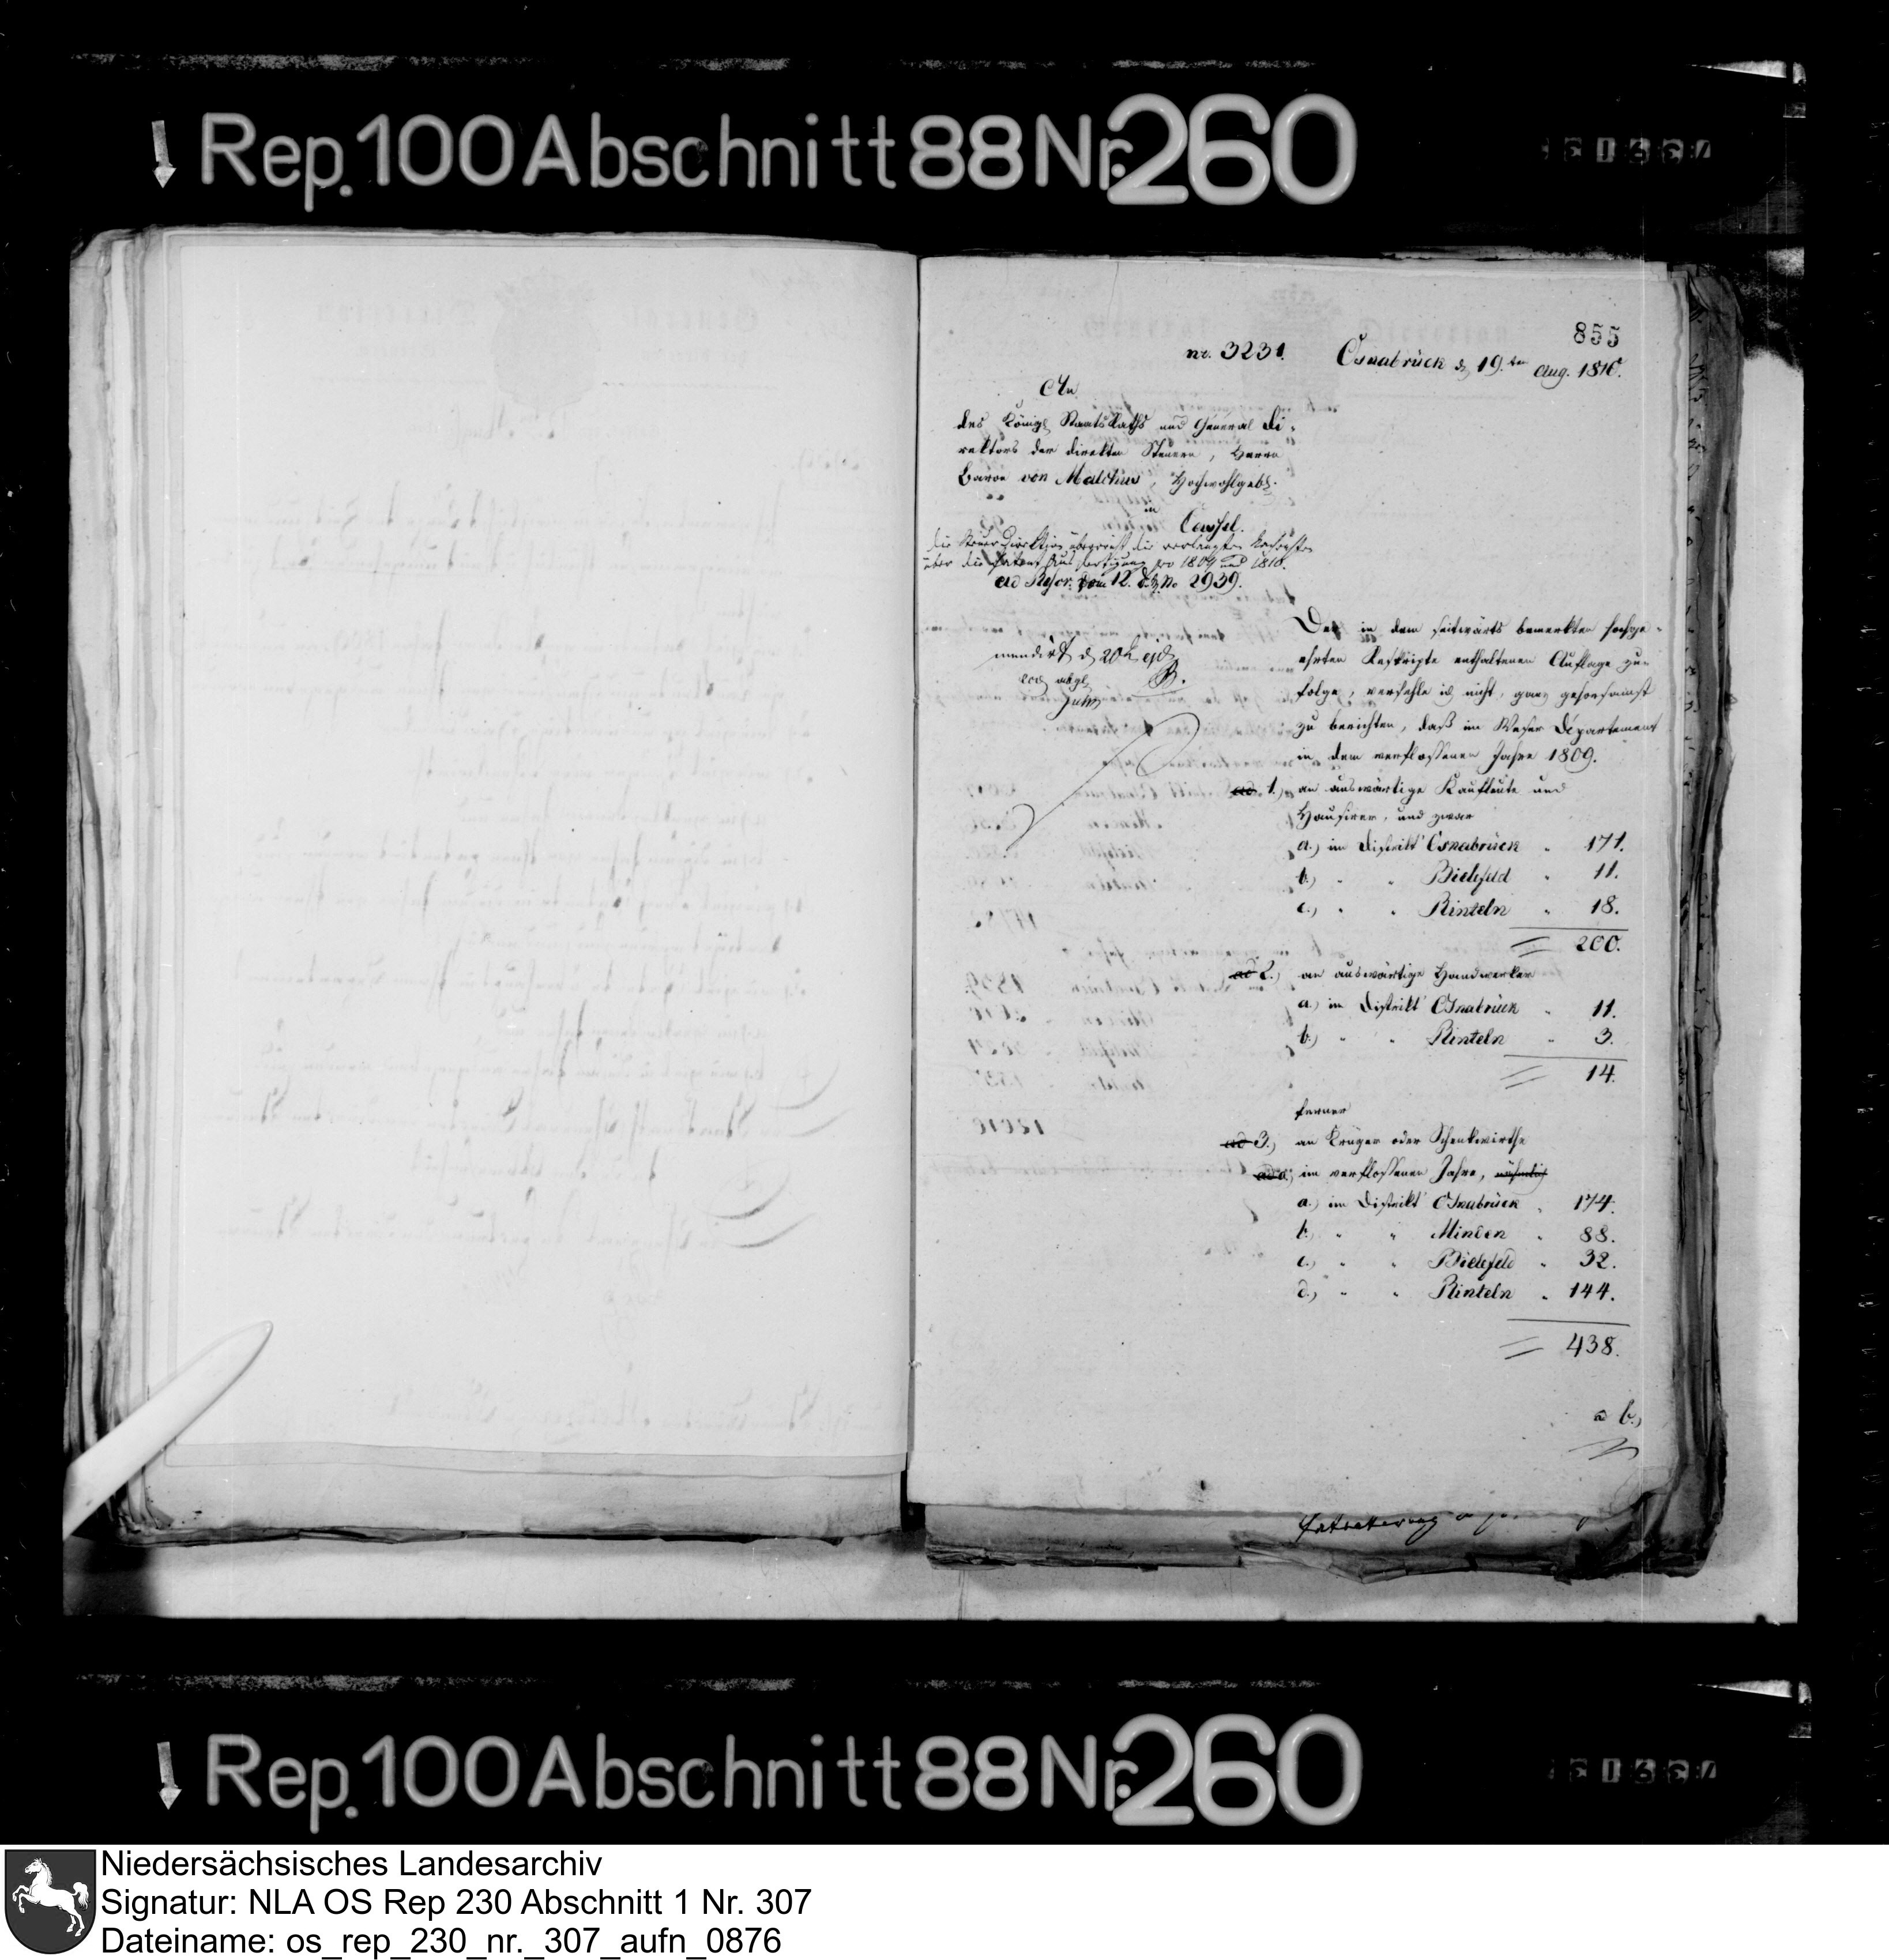 Rep. 100 Abschnitt 88 Nr. 260
855
nr. 3231. Osnabrück d 19.ten Aug. 1810.
An
des Königl StaatsRaths und General Di-
rektors der direkten Steuern, Herrn
Baron von Malchus, Hochwohlgeb.
in
Cassel.
die Steuer Direktion überreicht die verlangten Nachrichten
über die Patent Ausfertigung pro 1809 und 1810.
ad Rescr. vom 12. d. No 2939.
mundirt d 20t ejd
B.
Der in dem seitwärts bemerkten hochge-
ehrten Reskripte enthaltenen Auflage zu-
folge, verfehle ich nicht, ganz gehorsamst
zu berichten, daß im Weser Département
in dem verflossenen Jahre 1809.
ad 1.) an auswärtige Kaufleute und
Hausirer, und zwar
a.) im District Osnabrück " 171.
b.) " " Bielefeld " 11.
c.) " " Rinteln " 18.
200.
ad 2.) an auswärtige Handwerker
a.) im District Osnabrück " 11.
b.) " " Rinteln " 3.
14.
ferner
ad 3.) an Krüger oder Schenkwirthe
ad a.) im verflossenen Jahre, nähmlich
a.) im District Osnabrück " 174.
b.) " " Minden " 88.
c.) " " Bielefeld " 32.
d.) " " Rinteln " 144.
438.
b.)
Rep. 100 Abschnitt 88 Nr. 260
Niedersächsisches Landesarchiv
Signatur: NLA OS Rep 230 Abschnitt 1 Nr. 307
Dateiname: os_rep_230_nr._307_aufn_0876